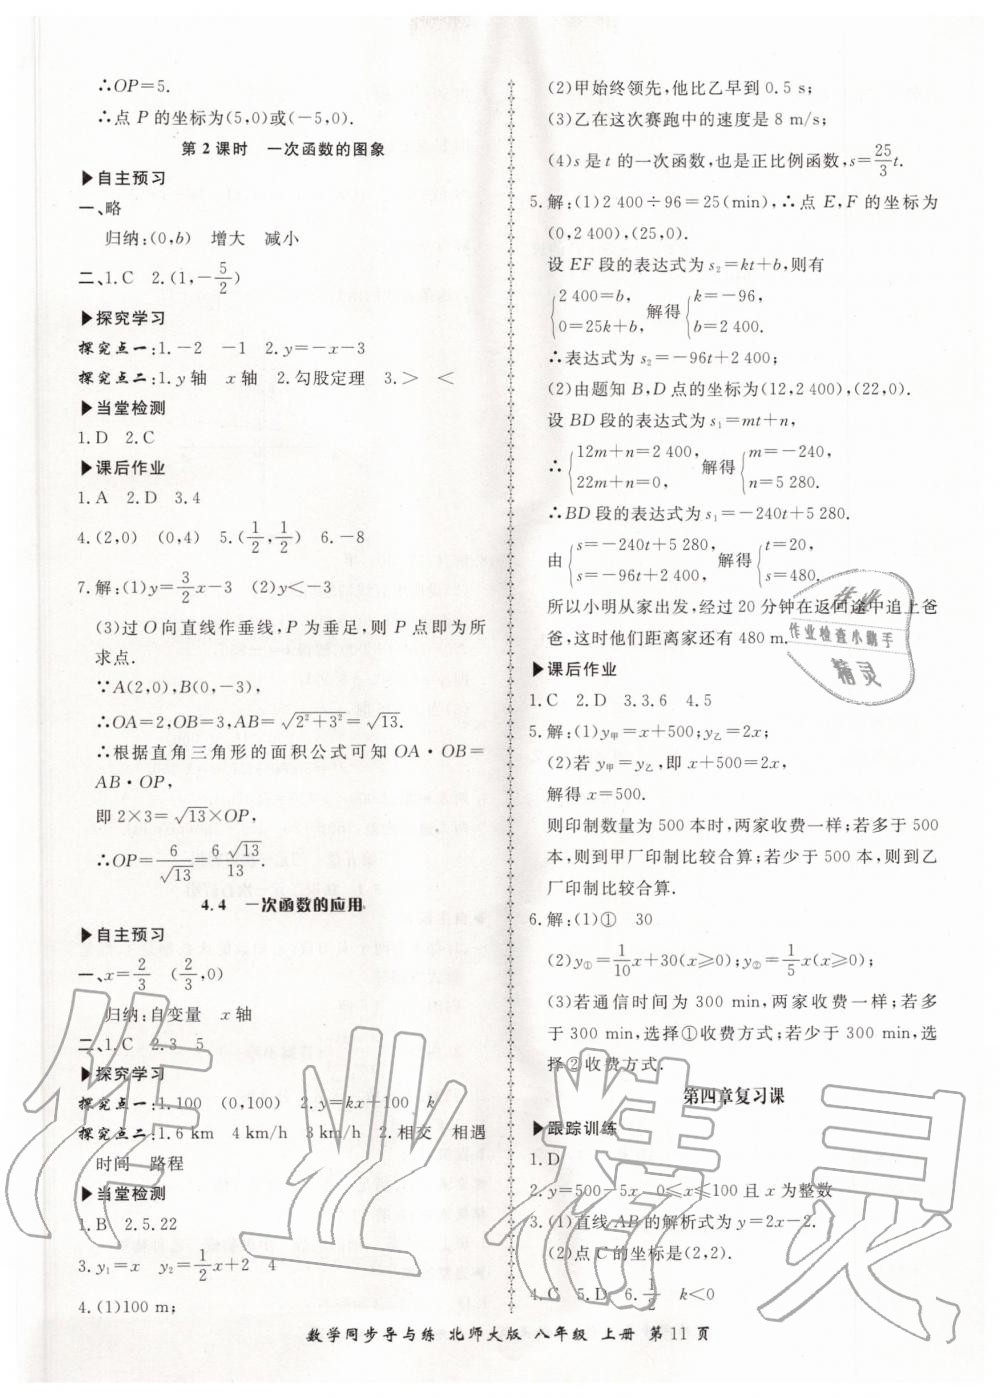 ∴OP=5.
∴点 P 的坐标为(5,0)或(-5,0).
第 2 课时　一次函数的图象
▶自主预习
一、略
归纳:(0,b)　增大　减小
二、1.C　2.(1,-5/2)
▶探究学习
探究点一:1.-2　-1　2.y=-x-3
探究点二:1.y 轴　x 轴　2.勾股定理　3.>　<
▶当堂检测
1.D　2.C
▶课后作业
1.A　2.D　3.4
4.(2,0)　(0,4)　5.(1/2,1/2)　6.-8
7.解:(1)y=3/2x-3　(2)y<-3
(3)过 O 向直线作垂线,P 为垂足,则 P 点即为所
求点.
∵A(2,0),B(0,-3),
∴OA=2,OB=3,AB=√(2²+3²)=√13.
∴根据直角三角形的面积公式可知 OA·OB=
AB·OP,
即 2×3=√13×OP,
∴OP=6/√13=6√13/13.
4.4　一次函数的应用
▶自主预习
一、x=2/3　(2/3,0)
归纳:自变量　x 轴
二、1.C　2.3　5
▶探究学习
探究点一:1.100　(0,100)　2.y=kx+100　k
探究点二:1.6 km　4 km/h　3 km/h　2.相交　相遇
时间　路程
▶当堂检测
1.B　2.5.22
3.y₁=x　y₂=1/2x+2　4
4.(1)100 m;
(2)甲始终领先,他比乙早到 0.5 s;
(3)乙在这次赛跑中的速度是 8 m/s;
(4)s 是 t 的一次函数,也是正比例函数,s=25/3t.
5.解:(1)2 400÷96=25(min),∴点 E,F 的坐标为
(0,2 400),(25,0).
设 EF 段的表达式为 s₂=kt+b,则有
{2 400=b, 0=25k+b, 解得{k=-96, b=2 400.
∴表达式为 s₂=-96t+2 400.
(2)由题知 B,D 点的坐标为(12,2 400),(22,0).
设 BD 段的表达式为 s₁=mt+n,
∴{12m+n=2 400, 22m+n=0, 解得{m=-240, n=5 280.
∴BD 段的表达式为 s₁=-240t+5 280.
由{s=-240t+5 280, s=-96t+2 400, 解得{t=20, s=480.
所以小明从家出发,经过 20 分钟在返回途中追上爸
爸,这时他们距离家还有 480 m.
▶课后作业
1.C　2.D　3.3.6　4.5
5.解:(1)y甲=x+500;y乙=2x;
(2)若 y甲=y乙,即 x+500=2x,
解得 x=500.
则印制数量为 500 本时,两家收费一样;若多于 500
本,则到甲厂印制比较合算;若少于 500 本,则到乙
厂印制比较合算.
6.解:(1)①　30
(2)y①=1/10x+30(x≥0);y②=1/5x(x≥0);
(3)若通信时间为 300 min,两家收费一样;若多
于 300 min,选择①收费方式;若少于 300 min,选
择②收费方式.
第四章复习课
▶跟踪训练
1.D
2.y=500-5x　0≤x≤100 且 x 为整数
3.(1)直线 AB 的解析式为 y=2x-2.
(2)点 C 的坐标是(2,2).
4.C　5.D　6.1/2　k<0
数学同步导与练 北师大版 八年级 上册 第 11 页
作业
作业检查小助手
精灵
作业精灵